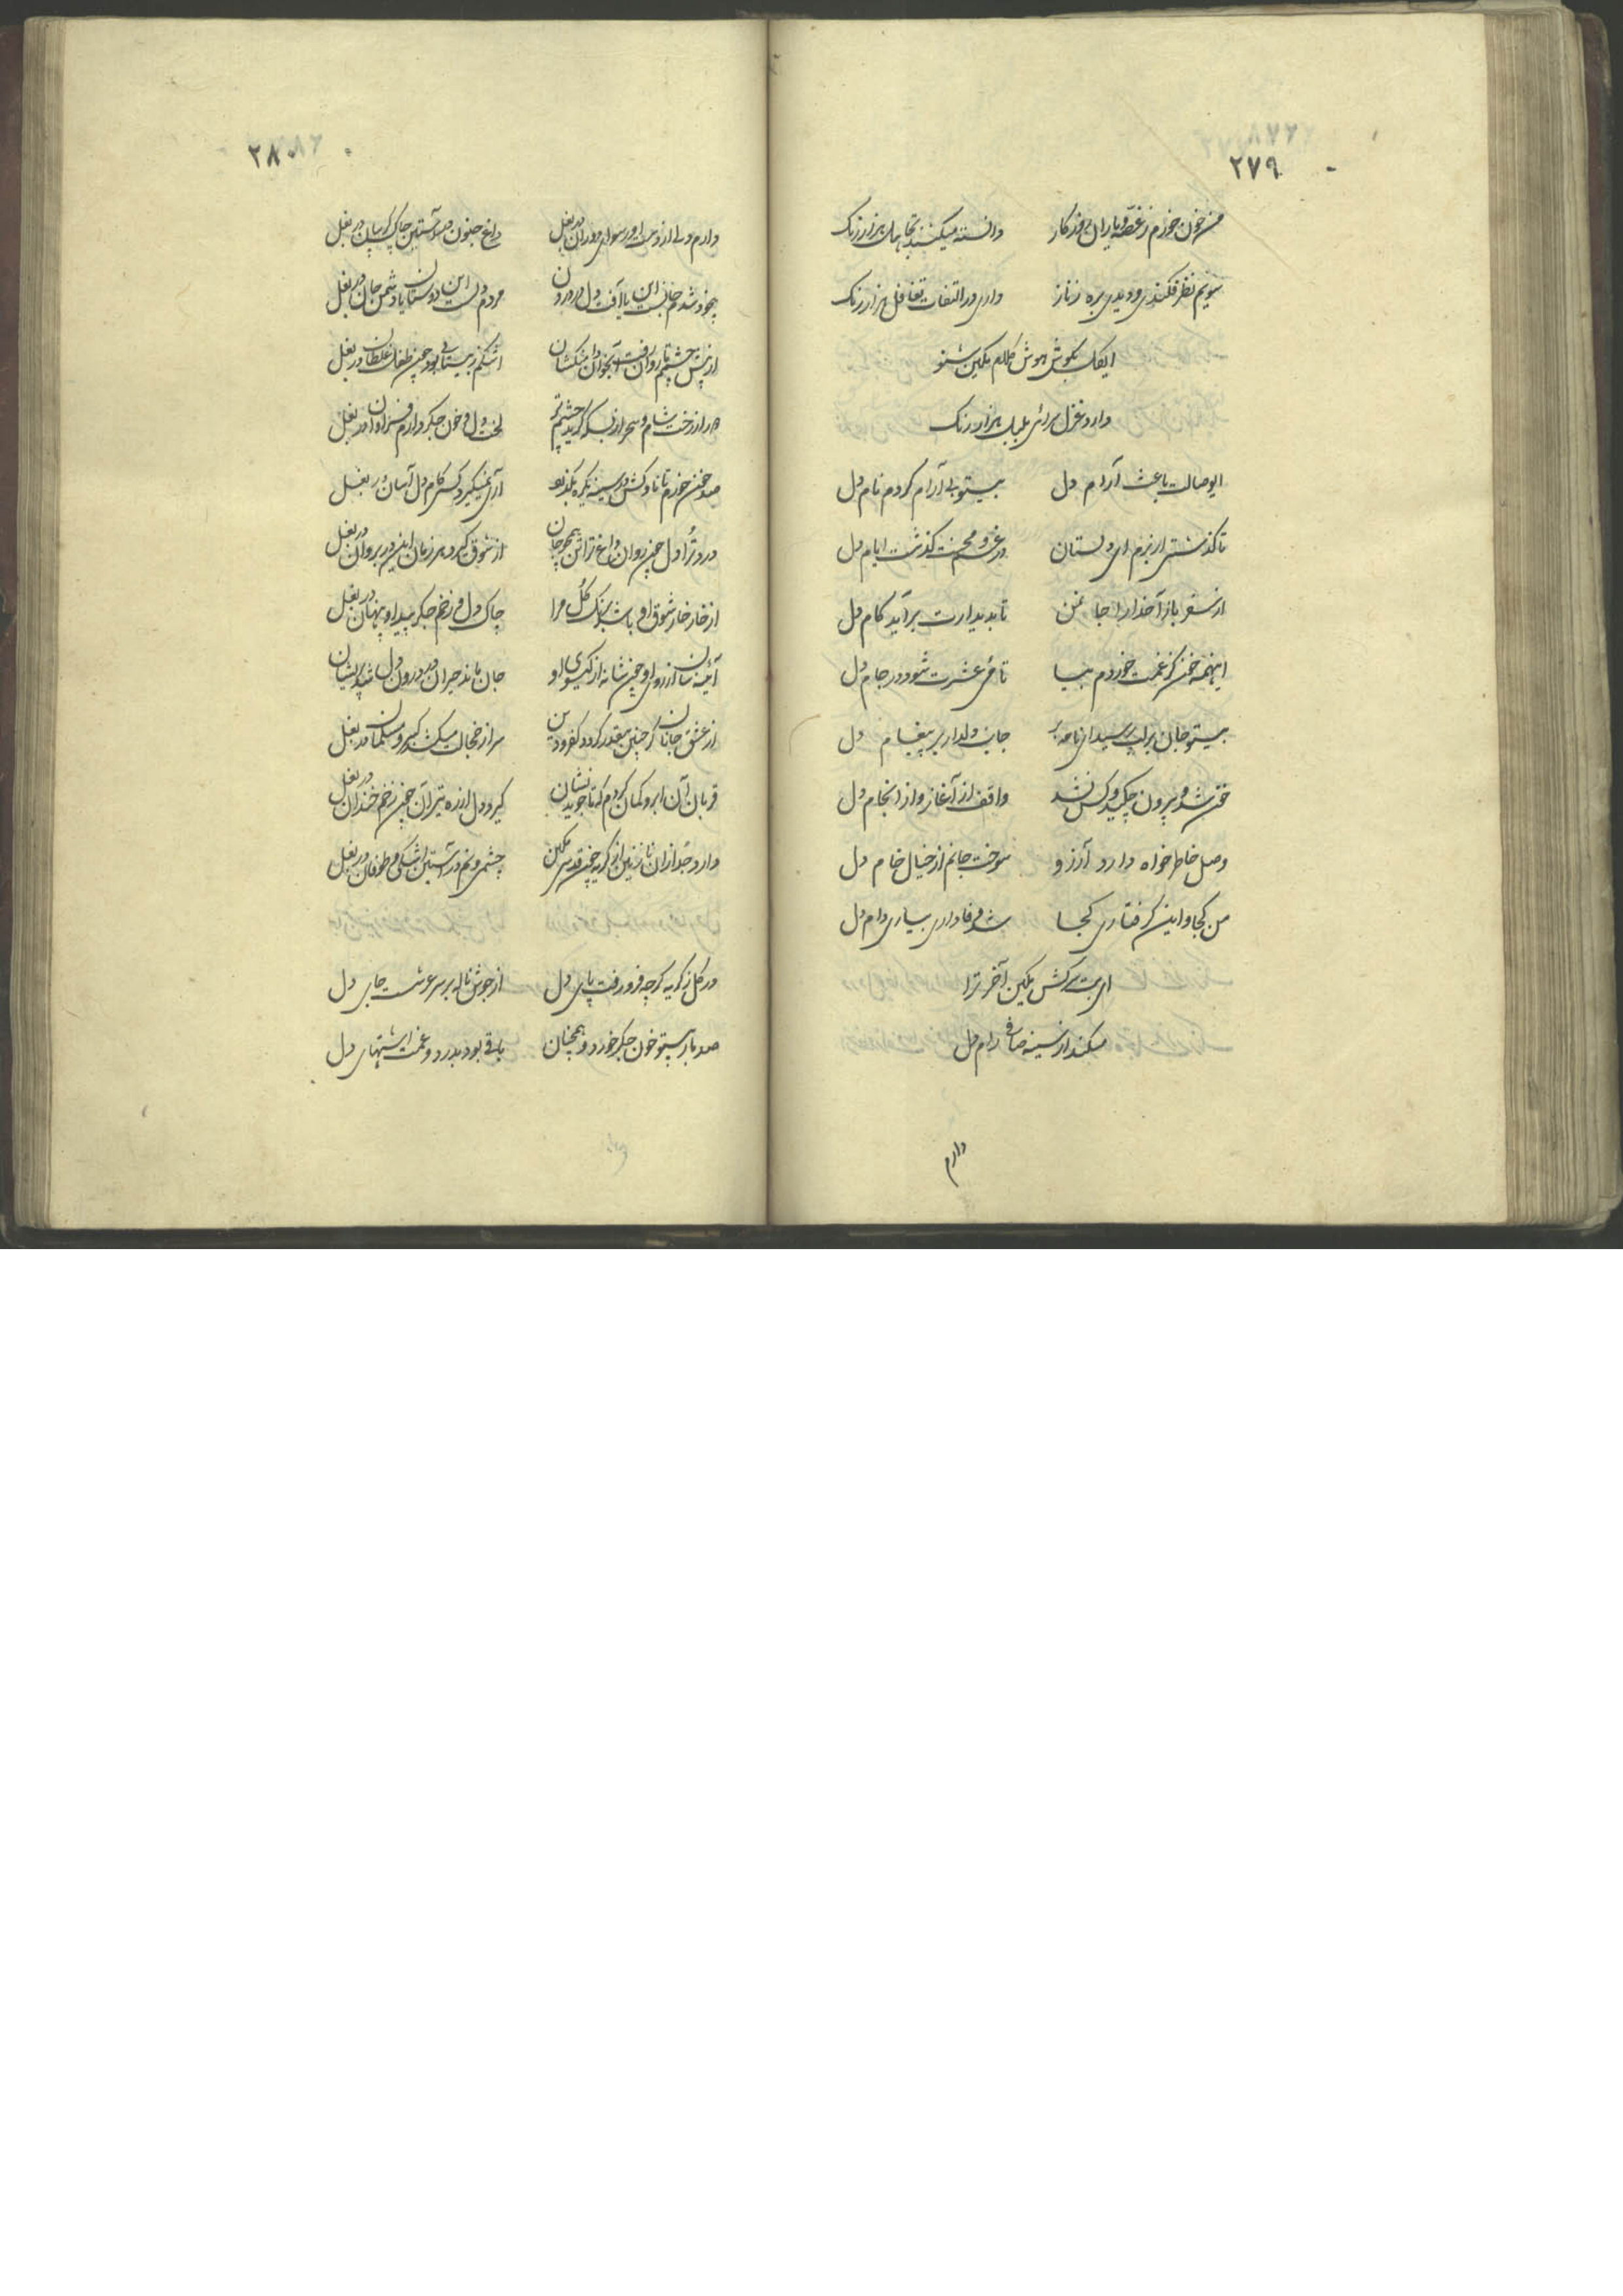 ۲۷۹
من خون خورم ز غصه و یاران روزکار دانسته میکنند تجاهل هزار رنک
سویم نظر فکندی و دیدی بره ز ناز داری در التفات تغافل هزار رنک
ایکل بکوش هوش کلام مکین شنو
دارد غزل سرائی بلبل هزار رنک
ایوصالت باعث آرام دل بیتو بی آرام کردم نام دل
تا کذشتی از برم ای دلستان در غم و محنت کذشت ایام دل
از سفر باز آ خدا را جان من تا بدیدارت برآید کام دل
اینهمه خون کز غمت خوردم بیا تا می عشرت شود در جام دل
بیتو جان بر لب رسید ای نامه بر جانب دلدار بر پیغام دل
خون شد و بیرون چکید و کس نشد واقف از آغاز و از انجام دل
وصل خاطرخواه دارد آرزو سوخت جانم از خیال خام دل
من کجا و این کرفتاری کجا شد وفاداری بسیاری دام دل
ای بت سرکش مکین آخر ترا
میکند از سینه صافی رام دل
دارم
۲۸۰
دارم دلی از دست او رسوای دوران در بغل داغ جنون در آستین چاک کریبان در بغل
بیخود شدم جانست این یا آفت دل در درون مردم دلست این دوستان یا دشمن جان در بغل
از پیش چشمم تا روان رفت آنجوان دامنکشان اشکم ز بیتابی بود چون طفل غلطان در بغل
از زخت شام و سحر از بسکه کرید چشم تر لخت دل و خون جکر دارم فراوان در بغل
صد خون خورم تا ناوکش در سینه یکره بکذرد آری نمیکیرد کسی کام دل آسان در بغل
درد ترا دل چون روان داغ ترا تن همچو جان از شوق کیرد هر زمان این در بر و آن در بغل
از خار خار شوق او باشد برنک کل مرا چاک دل و زخم جکر پیدا و پنهان در بغل
آئینه سان از روی او چون شانه از کیسوی او جان ماند حیران در درون دل شد پریشان در بغل
از عشق جانان کر چنین بیقدر کردد کفر و دین سر از خجالت میکشد کبر و مسلمان در بغل
قربان آن ابرو کمان کردم که تا جوید نشان کیرد دل از ره تیر آن چون زخم خندان در بغل
دارد جدا زان نازنین از کریه چون قدسی مکین چشمی و نم در آستین اشکی و طوفان در بغل
در کل ز کریه کرچه فرو رفت پای دل از جوش ناله بر سر عرشست جای دل
صد بار بیتو خون جکر خورد و همچنان باقی بود بدرد و غمت اشتهای دل